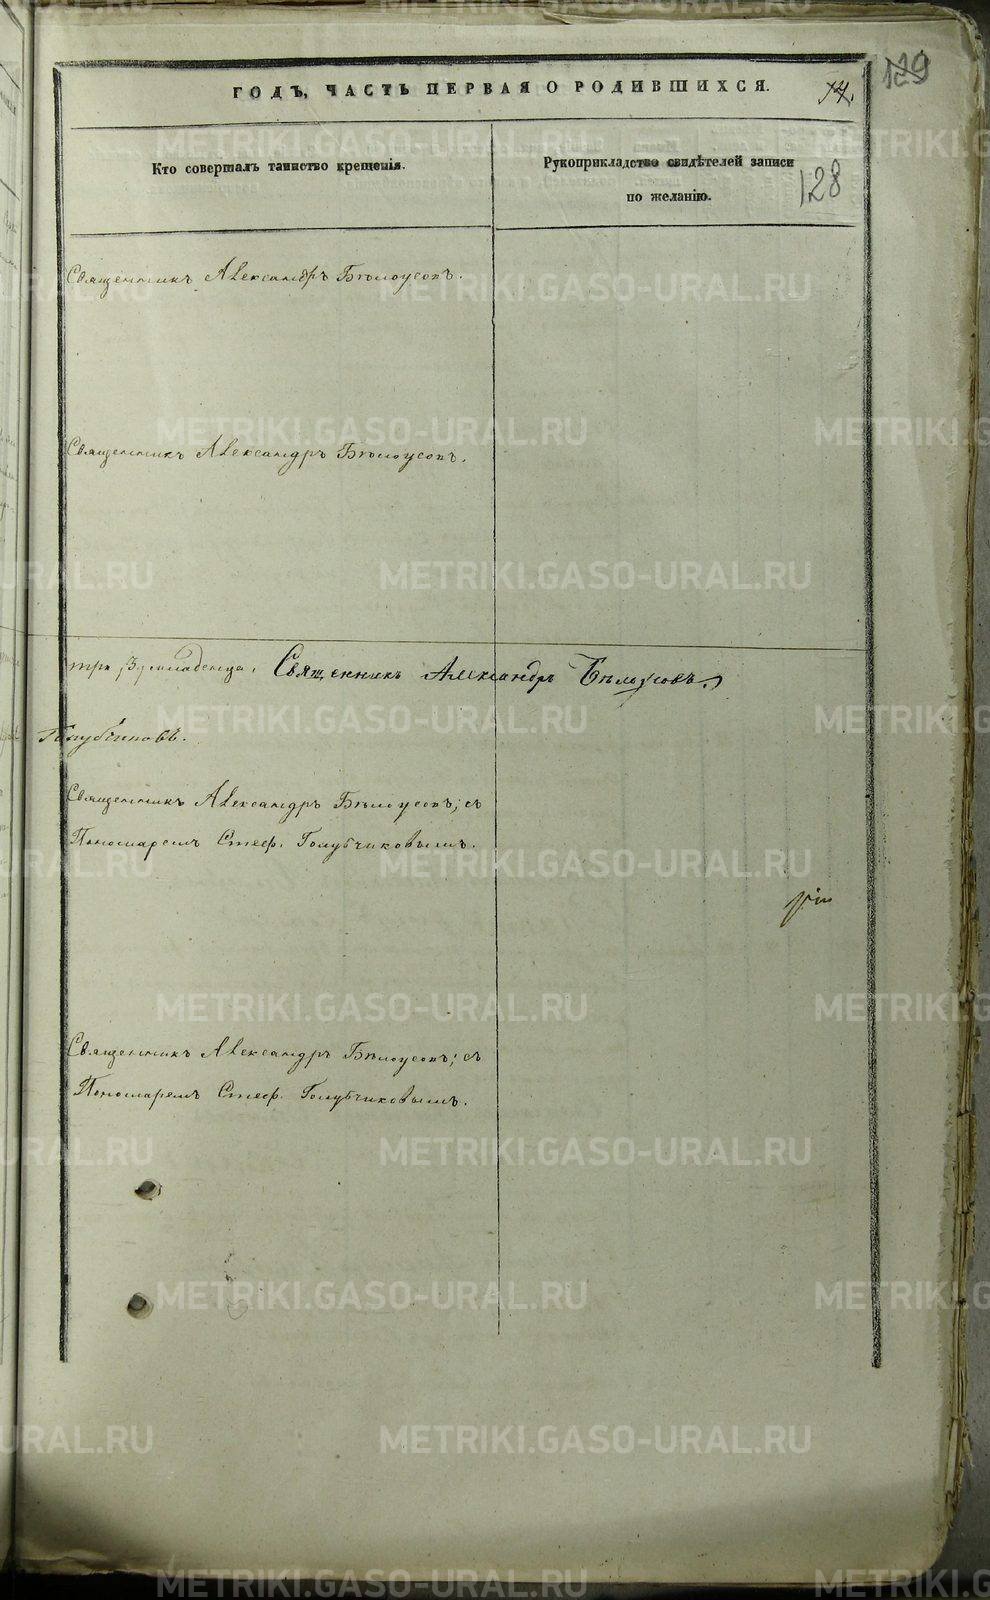 ГОДЪ, ЧАСТЬ ПЕРВАЯ О РОДИВШИХСЯ.
14.
129
Кто совершалъ таинство крещенія.
Рукоприкладство свидѣтелей записи
по желанію.
128
Священникъ Александръ Бѣлоусовъ.
Священникъ Александръ Бѣлоусовъ.
три /3/ младенца. Священникъ Александръ Бѣлоусовъ.
Голубчиковъ.
Священникъ Александръ Бѣлоусовъ; съ
Пономаремъ Стеф. Голубчиковымъ.
Священникъ Александръ Бѣлоусовъ; съ
Пономаремъ Стеф. Голубчиковымъ.
METRIKI.GASO-URAL.RU